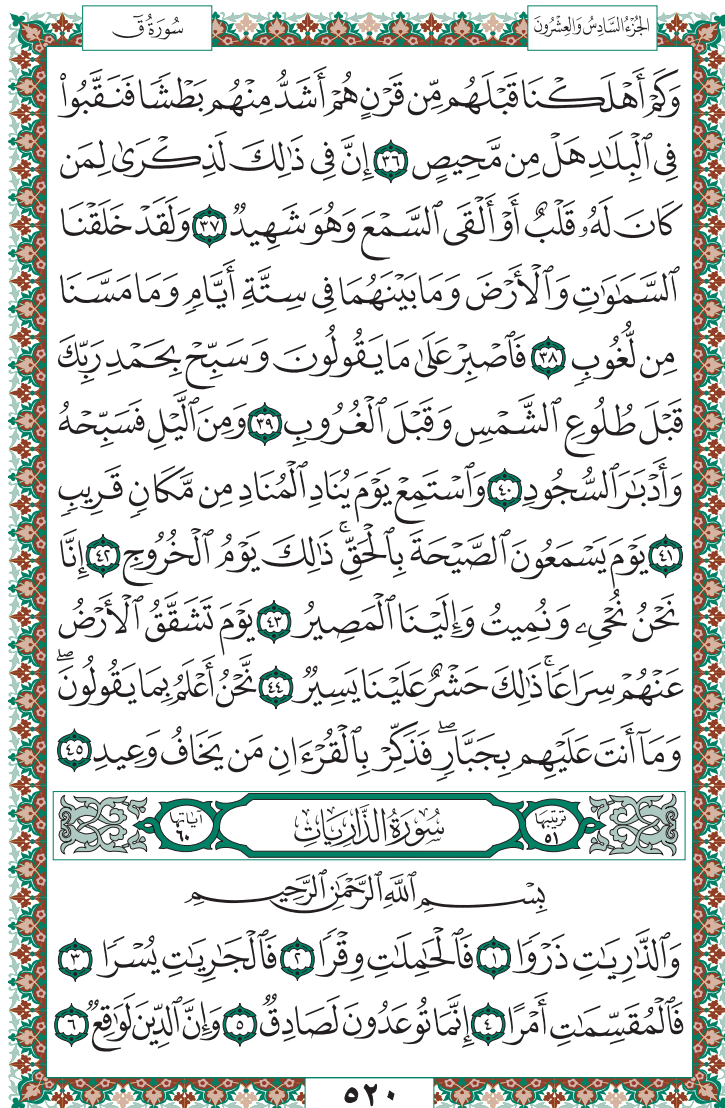 الجُزْءُ السَّادِسُ وَالعِشْرُونَ
سُورَةُ قٓ
وَكَمْ أَهْلَكْنَا قَبْلَهُم مِّن قَرْنٍ هُمْ أَشَدُّ مِنْهُم بَطْشًا فَنَقَّبُوا۟
فِى ٱلْبِلَـٰدِ هَلْ مِن مَّحِيصٍ ٣٦ إِنَّ فِى ذَٰلِكَ لَذِكْرَىٰ لِمَن
كَانَ لَهُۥ قَلْبٌ أَوْ أَلْقَى ٱلسَّمْعَ وَهُوَ شَهِيدٌ ٣٧ وَلَقَدْ خَلَقْنَا
ٱلسَّمَـٰوَٰتِ وَٱلْأَرْضَ وَمَا بَيْنَهُمَا فِى سِتَّةِ أَيَّامٍ وَمَا مَسَّنَا
مِن لُّغُوبٍ ٣٨ فَٱصْبِرْ عَلَىٰ مَا يَقُولُونَ وَسَبِّحْ بِحَمْدِ رَبِّكَ
قَبْلَ طُلُوعِ ٱلشَّمْسِ وَقَبْلَ ٱلْغُرُوبِ ٣٩ وَمِنَ ٱلَّيْلِ فَسَبِّحْهُ
وَأَدْبَـٰرَ ٱلسُّجُودِ ٤٠ وَٱسْتَمِعْ يَوْمَ يُنَادِ ٱلْمُنَادِ مِن مَّكَانٍ قَرِيبٍ
٤١ يَوْمَ يَسْمَعُونَ ٱلصَّيْحَةَ بِٱلْحَقِّ ۚ ذَٰلِكَ يَوْمُ ٱلْخُرُوجِ ٤٢ إِنَّا
نَحْنُ نُحْىِۦ وَنُمِيتُ وَإِلَيْنَا ٱلْمَصِيرُ ٤٣ يَوْمَ تَشَقَّقُ ٱلْأَرْضُ
عَنْهُمْ سِرَاعًا ۚ ذَٰلِكَ حَشْرٌ عَلَيْنَا يَسِيرٌ ٤٤ نَّحْنُ أَعْلَمُ بِمَا يَقُولُونَ ۖ
وَمَآ أَنتَ عَلَيْهِم بِجَبَّارٍ ۖ فَذَكِّرْ بِٱلْقُرْءَانِ مَن يَخَافُ وَعِيدِ ٤٥
ترتيبها ٥١
سُورَةُ الذَّارِيَاتِ
آياتها ٦٠
بِسْمِ ٱللَّهِ ٱلرَّحْمَـٰنِ ٱلرَّحِيمِ
وَٱلذَّٰرِيَـٰتِ ذَرْوًا ١ فَٱلْحَـٰمِلَـٰتِ وِقْرًا ٢ فَٱلْجَـٰرِيَـٰتِ يُسْرًا ٣
فَٱلْمُقَسِّمَـٰتِ أَمْرًا ٤ إِنَّمَا تُوعَدُونَ لَصَادِقٌ ٥ وَإِنَّ ٱلدِّينَ لَوَٰقِعٌ ٦
٥٢٠